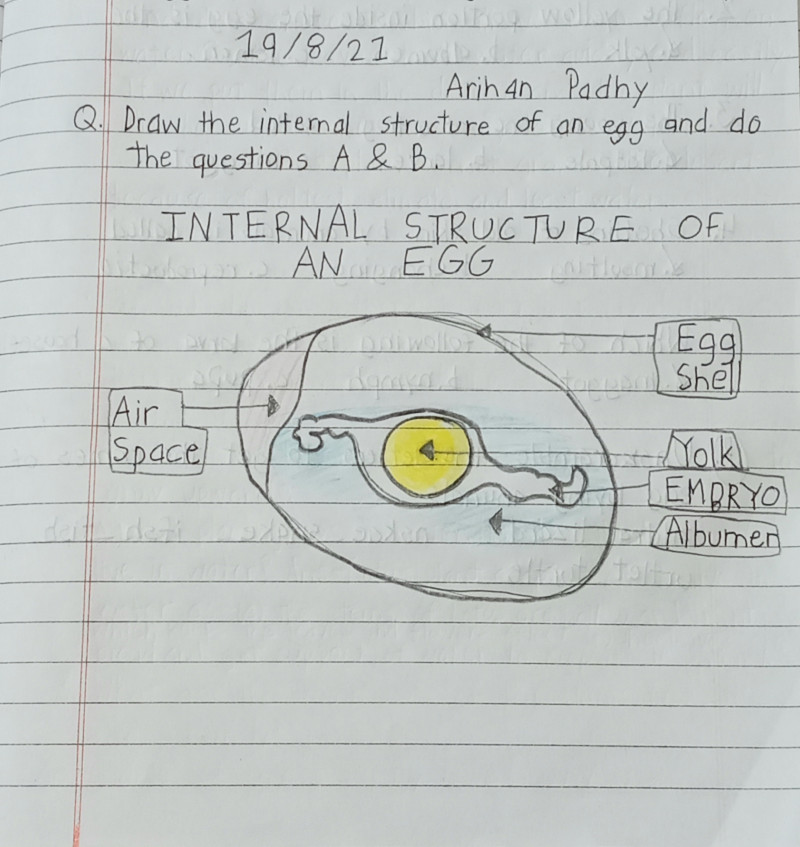 19/8/21
Arihan Padhy
Q. Draw the internal structure of an egg and do
the questions A & B.
INTERNAL STRUCTURE OF
AN EGG
Egg
Shell
Air
Space
Yolk
EMBRYO
Albumen